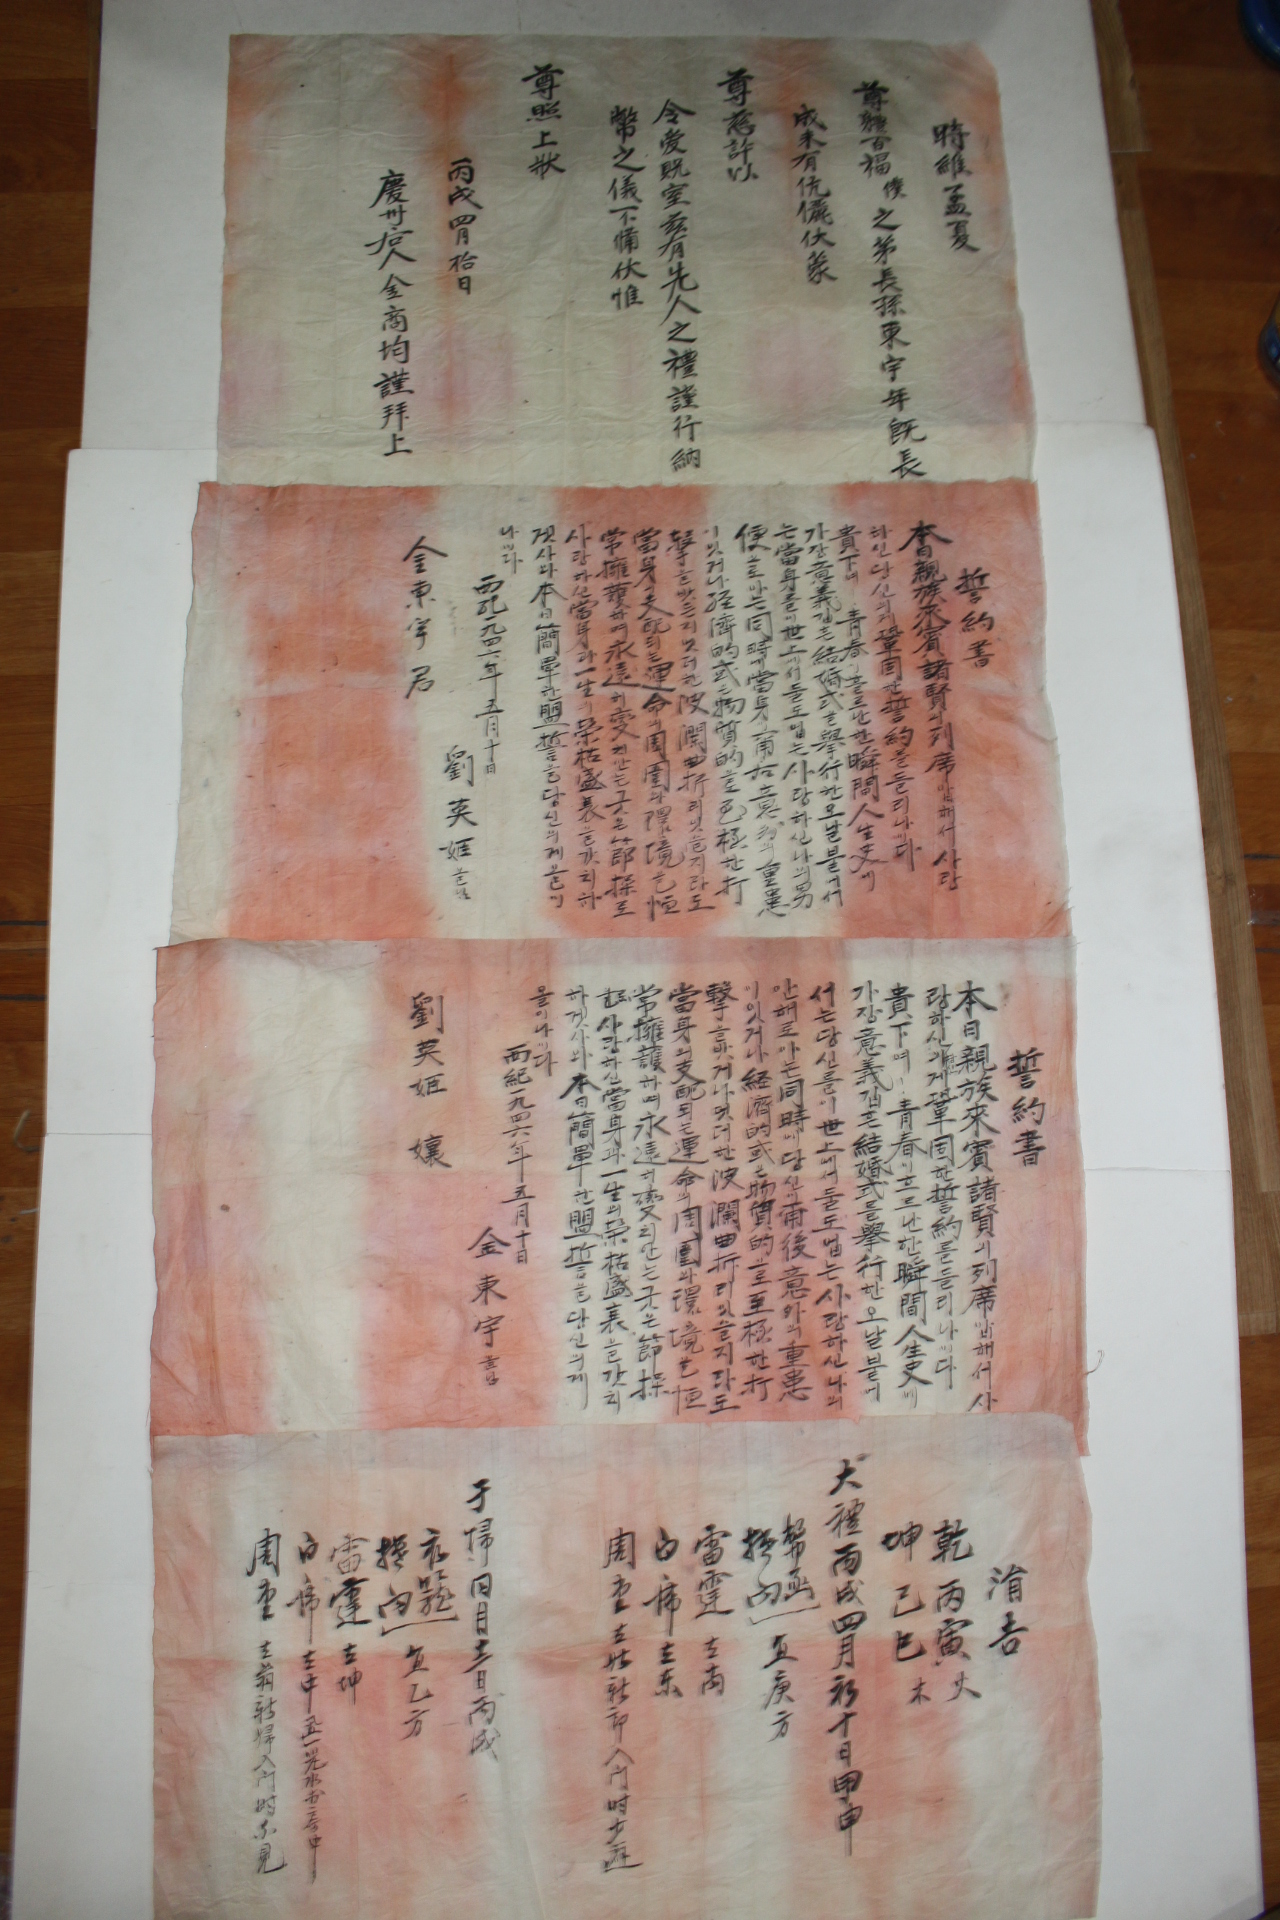 時維孟夏
尊體百福 僕之弟長孫東宇年旣長
成未有伉儷伏蒙
尊慈許以
令愛貺室玆有先人之禮謹行納
幣之儀不備伏惟
尊照上狀
丙戌四月拾日
慶州后人金商均謹拜上
誓約書
本日親族來賓諸賢의列席압해서 사랑
하신당신의게鞏固한誓約을들리나이다
貴下여 青春이흐르난한瞬間人生史에
가장意義깁흔結婚式을擧行한오날붙에서
는當身을이世上에서둘도업는사랑하신나의男
便으로아는同時에當身이
이잇거나経濟的或은物質的으로至極한打
擊을밧드래도엇더한波瀾曲折리잇을지라도
當身의支配되는運命의周圍와環境을恒
常擁護하며永遠히変치안는구든節操로
사랑하신當身과一生의榮枯盛衰을갓치하
겟사와本日簡單한盟誓을당신의게올이
나이다
西紀一九四六年五月十日
劉英姬 올님
金東宇 君
誓約書
本日親族來賓諸賢의列席압해서 사
랑하신 게鞏固한誓約을들리나이다
貴下여 青春이흐르난한瞬間人生史에
가장意義깁흔結婚式을擧行한오날붙에
서는당신을이世上에서둘도업는사랑하신나의
안해로아는同時에당신이前後意外의重患
이잇거나経濟的或은物質的으로至極한打
擊을밧거나엇더한波瀾曲折리잇을지라도
當身의支配되는運命의周圍와環境을恒
常擁護하며永遠히変치안는구든節操
로사랑하신當身과一生의榮枯盛衰을갓치
하겟사와本日簡單한盟誓을당신의게
올이나이다
西紀一九四六年五月十日
金東宇 올님
劉英姬 孃
涓吉
乾 丙寅 火
坤 己巳 木
大禮丙戌四月初十日甲申
幣函
搢向 宜庚方
雷霆 在
白席 在东
周堂 在 新郎入門時少避
于歸同月十二日丙戌
衣
搢向 宜乙方
雷霆 在坤
白席 在中
周堂 在翁新婦入門時不見